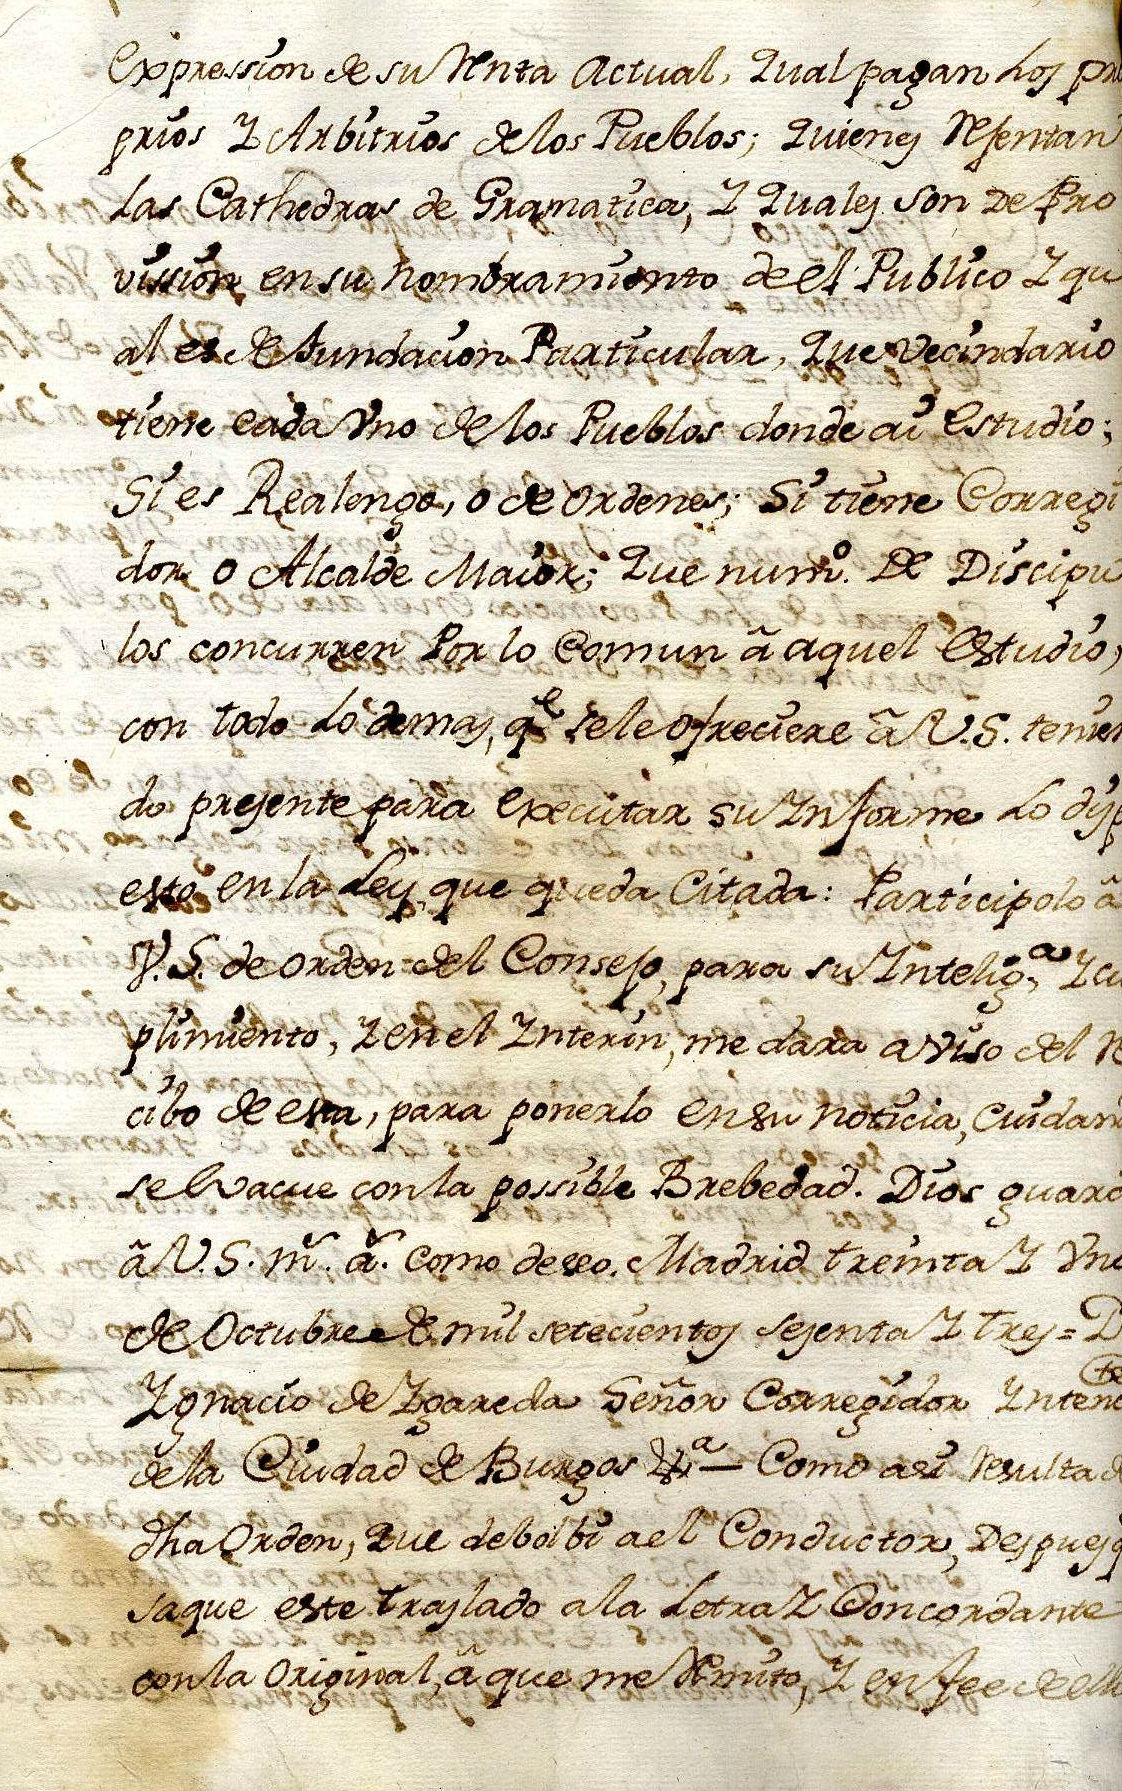 Expression de su Renta Actual, Qual pagan Los pro
prios Y Arbitrios de los Pueblos; Quienes Resentan
Las Cathedras de Gramatica, Y Quales son De Pro
vission en su nombramiento de el Publico Y qu
al es de fundacion Particular, Que vecindario
tiene cada Vno de los Pueblos donde ai Estudio;
Si es Realengo, o de ordenes; Si tiene Corregi
dor o Alcalde Maior; Que numo. De Discipu
los concurren Por lo Comun â aquel Estudio,
con todo Lo demas, qe se le ofreciere â V.S. tenien
do presente para executar su Ynforme Lo disp
esto en la Ley que queda Citada: Participolo â
V.S. de orden del Consejo, para su Ynteliga. Y cu
plimiento, Y en el Ynterin, me dara aviso del Re
cibo de esta, para ponerlo en su noticia, cuidan
se Evacue con la possible Brebedad. Dios guard
â V.S. ms. as. como deseo. Madrid treinta Y Vno
de Octubre de mil setecientos sesenta Y tres = D
Ygnacio de Ygareda Señor Corregidor Yntend
de la Ciudad de Burgos Como asi Resulta d
dha Orden, Que debolbi a el Conductor, Despues q
saque este traslado a la Letra Y Concordante
con la Original, â que me Remito, Y en fee de ello